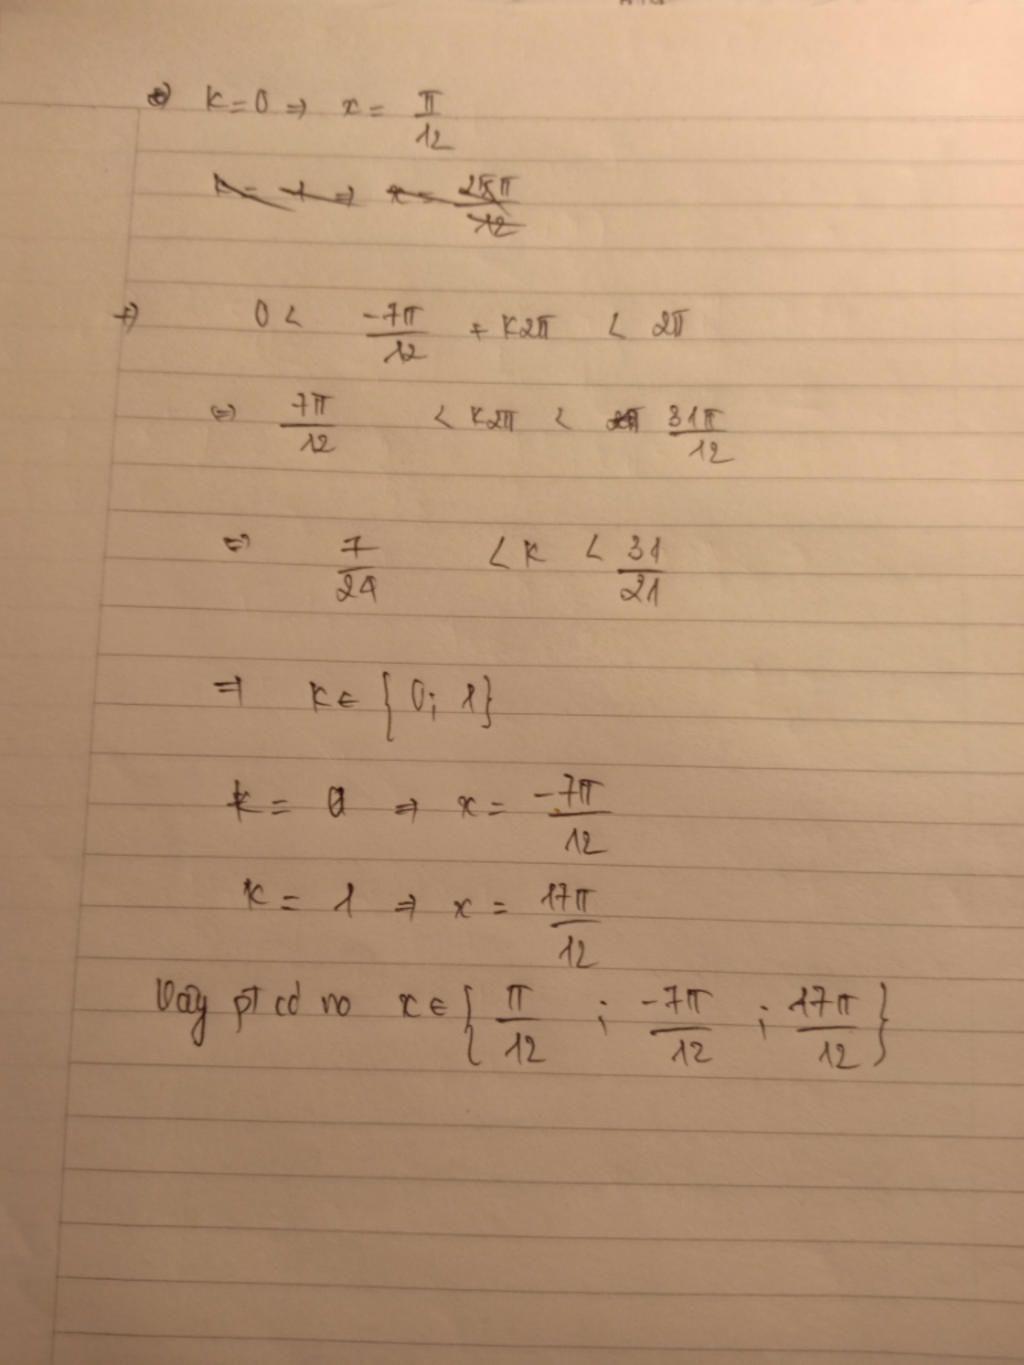 +) K=0 => x = π/12
K= 1 => x = 25π/12
+) 0 < -7π/12 + K2π < 2π
(=) 7π/12 < K2π < 31π/12
(=) 7/24 < K < 31/21
=> K ∈ {0; 1}
K = 0 => x = -7π/12
K = 1 => x = 17π/12
Vậy pt có no x ∈ {π/12 ; -7π/12 ; 17π/12}